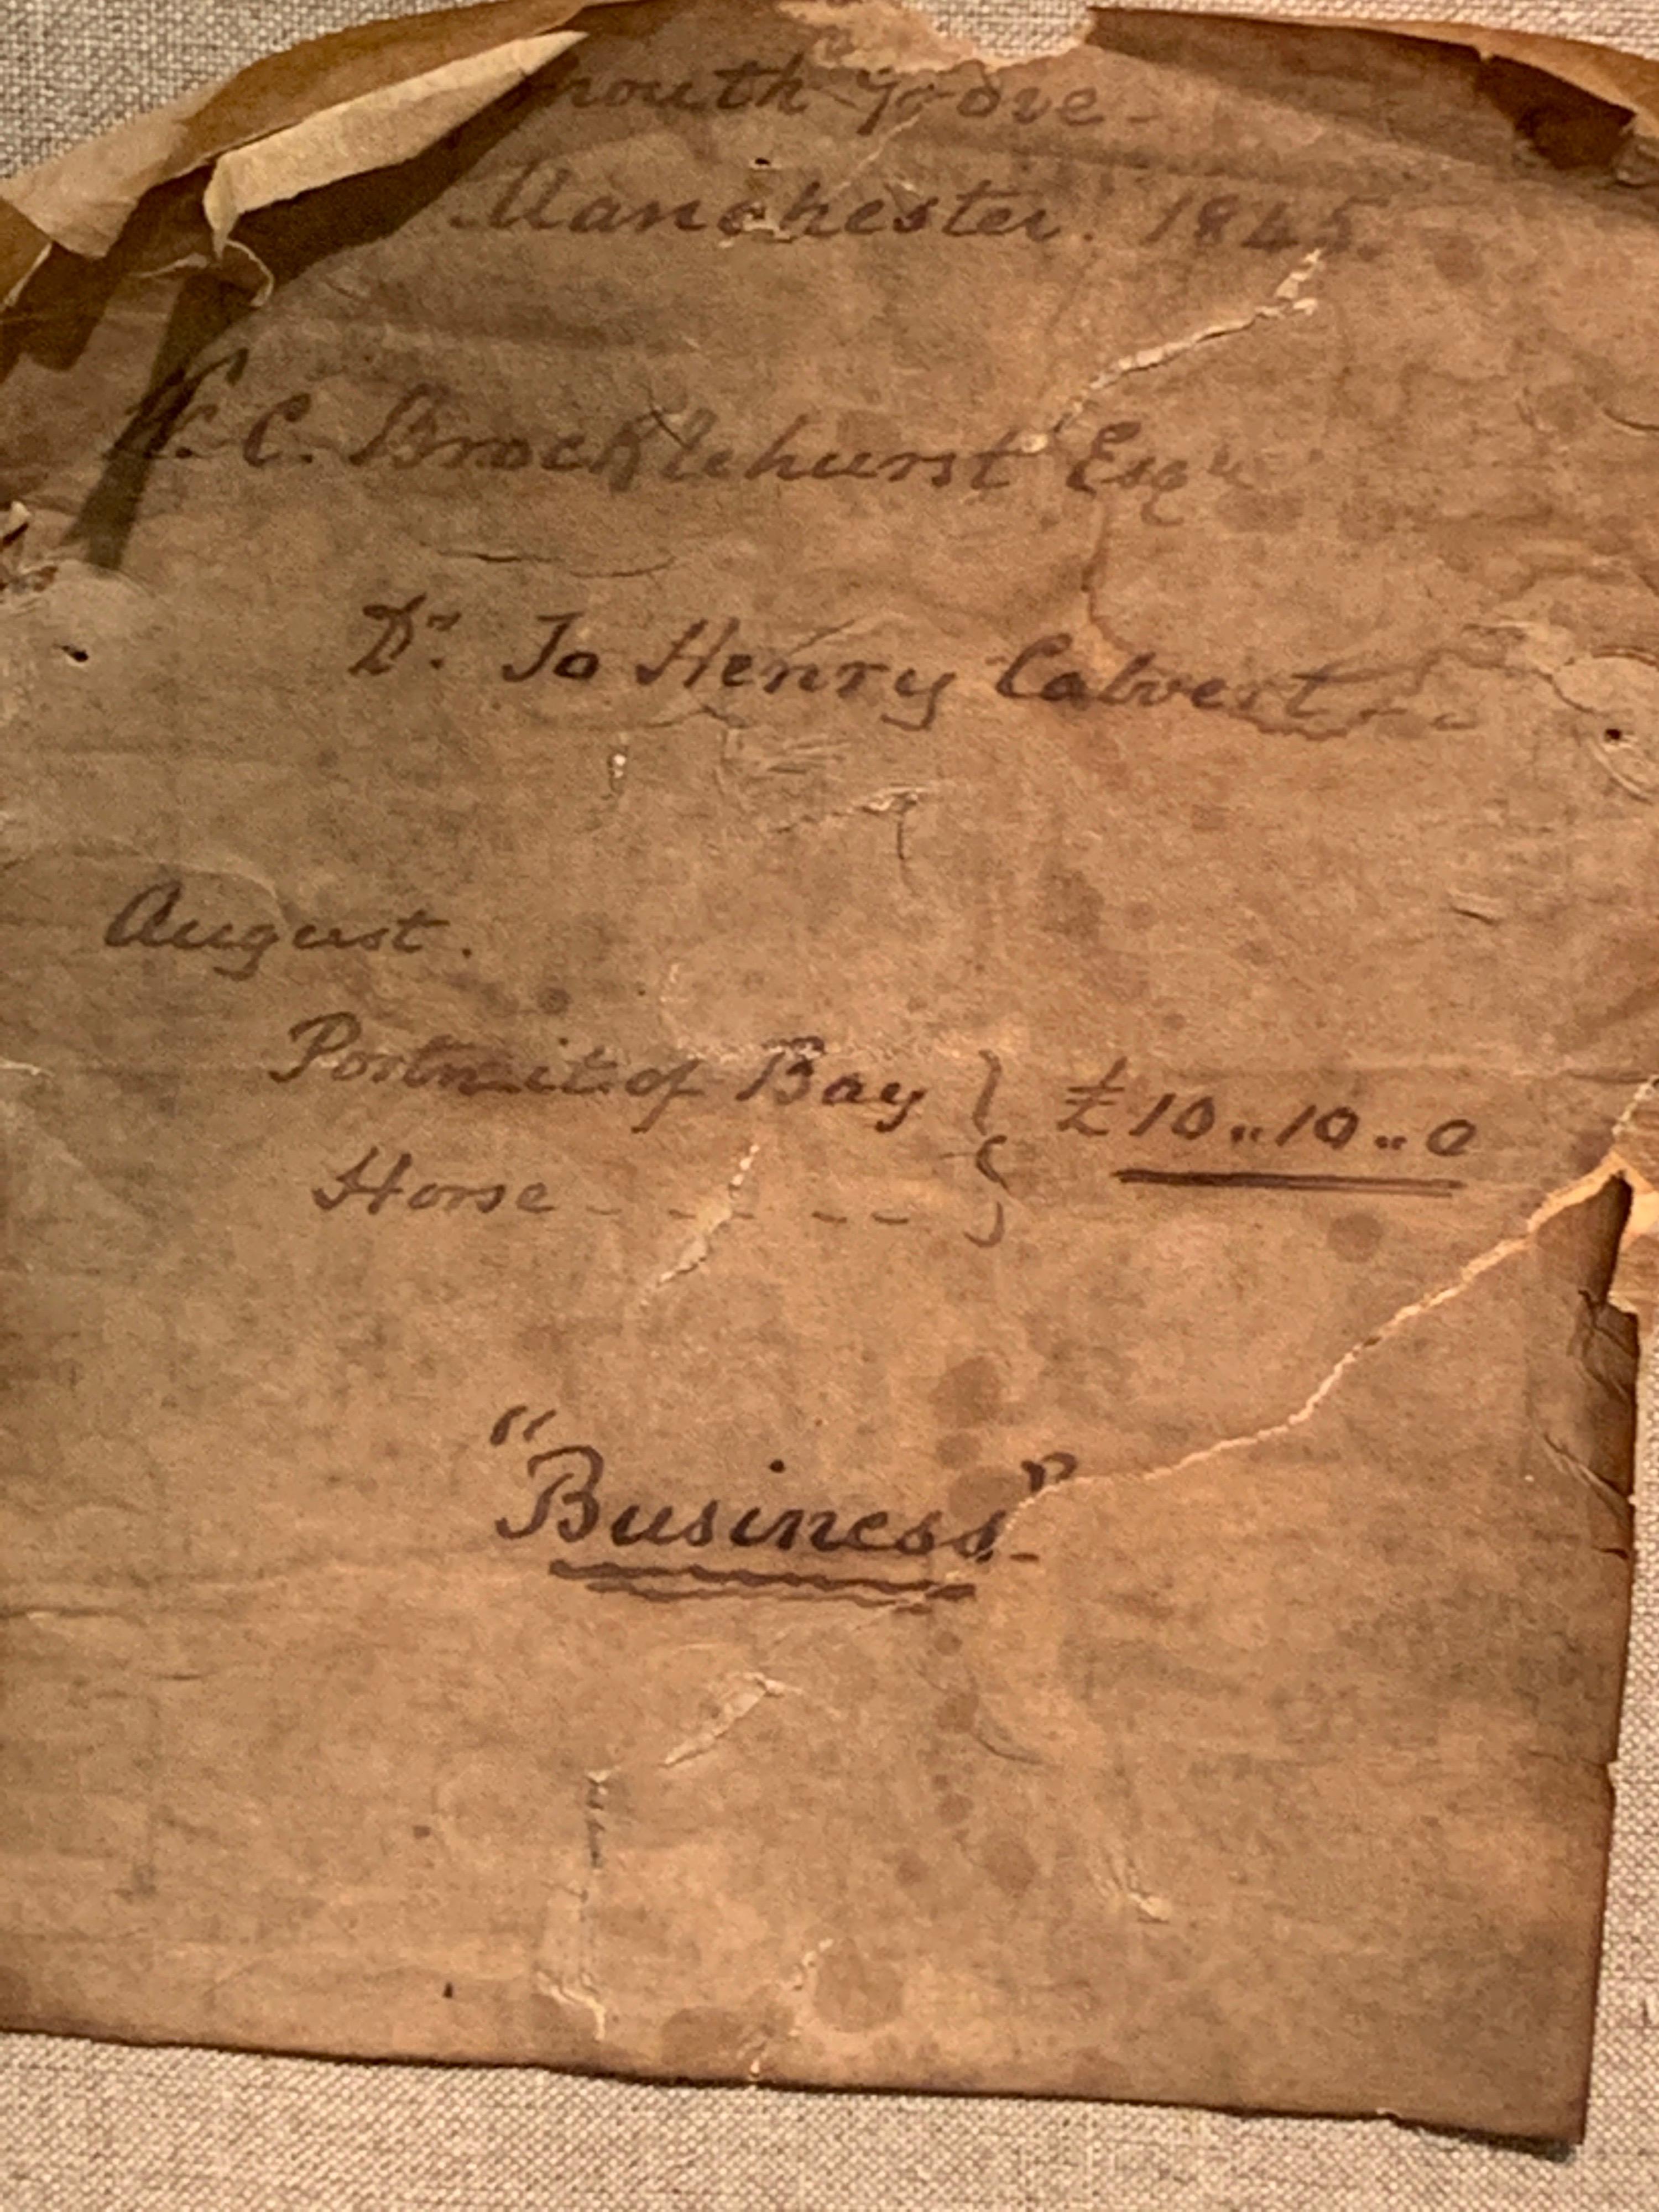 mouth Grove-
Manchester. 1845.
W. C. Brocklehurst Esqre
Dr. To Henry Calvert
August.
Portrait of Bay } £10..10..0
Horse - - - - - -
"Business"